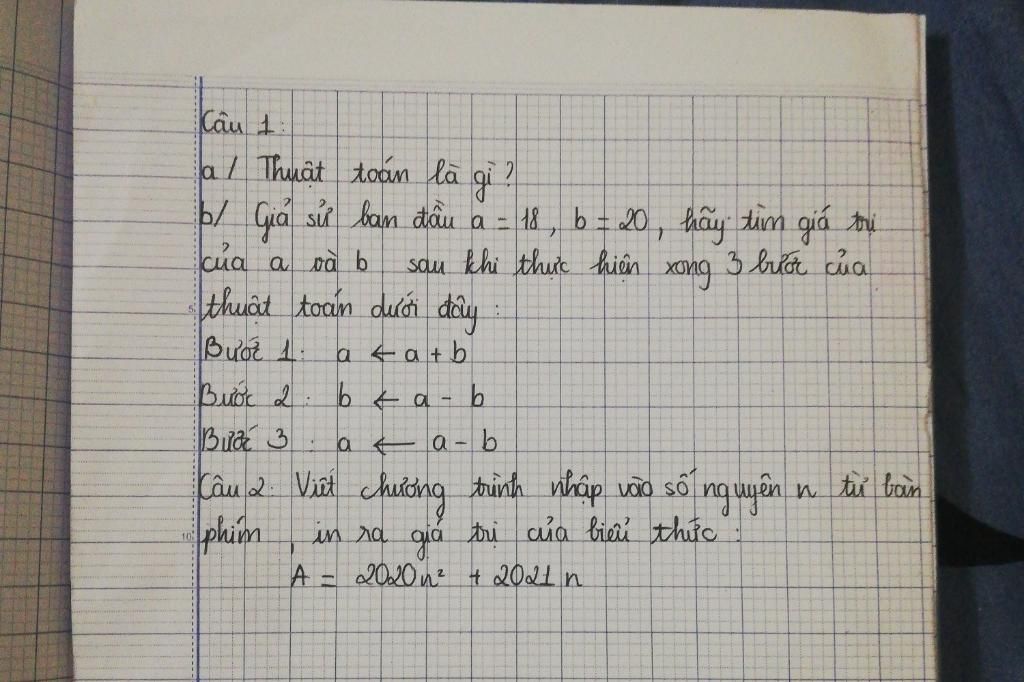 Câu 1:
a/ Thuật toán là gì?
b/ Giả sử ban đầu a = 18, b = 20, hãy tìm giá trị
của a và b sau khi thực hiện xong 3 bước của
5 thuật toán dưới đây:
Bước 1: a ← a + b
Bước 2: b ← a - b
Bước 3: a ← a - b
Câu 2: Viết chương trình nhập vào số nguyên n từ bàn
10 phím, in ra giá trị của biểu thức:
A = 2020n² + 2021n